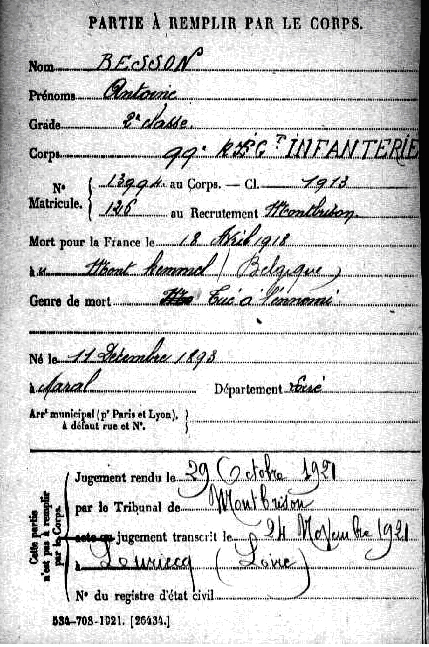 PARTIE À REMPLIR PAR LE CORPS.
Nom BESSON
Prénoms Antoine
Grade 2e classe.
Corps 99e RÉGT INFANTERIE
No Matricule. 13994 au Corps. — Cl. 1913
126 au Recrutement Montbrison
Mort pour la France le 18 Avril 1918
à Mont Kemmel (Belgique)
Genre de mort Tué à l'ennemi
Né le 11 Décembre 1893
à Maral Département Loire
Arrt municipal (pr Paris et Lyon),
à défaut rue et No.
Cette partie
n'est pas à remplir
par le Corps.
Jugement rendu le 29 Octobre 1921
par le Tribunal de Montbrison
acte ou jugement transcrit le 24 Novembre 1921
à Lu (Loire)
No du registre d'état civil
534-708-1921. [26434.]